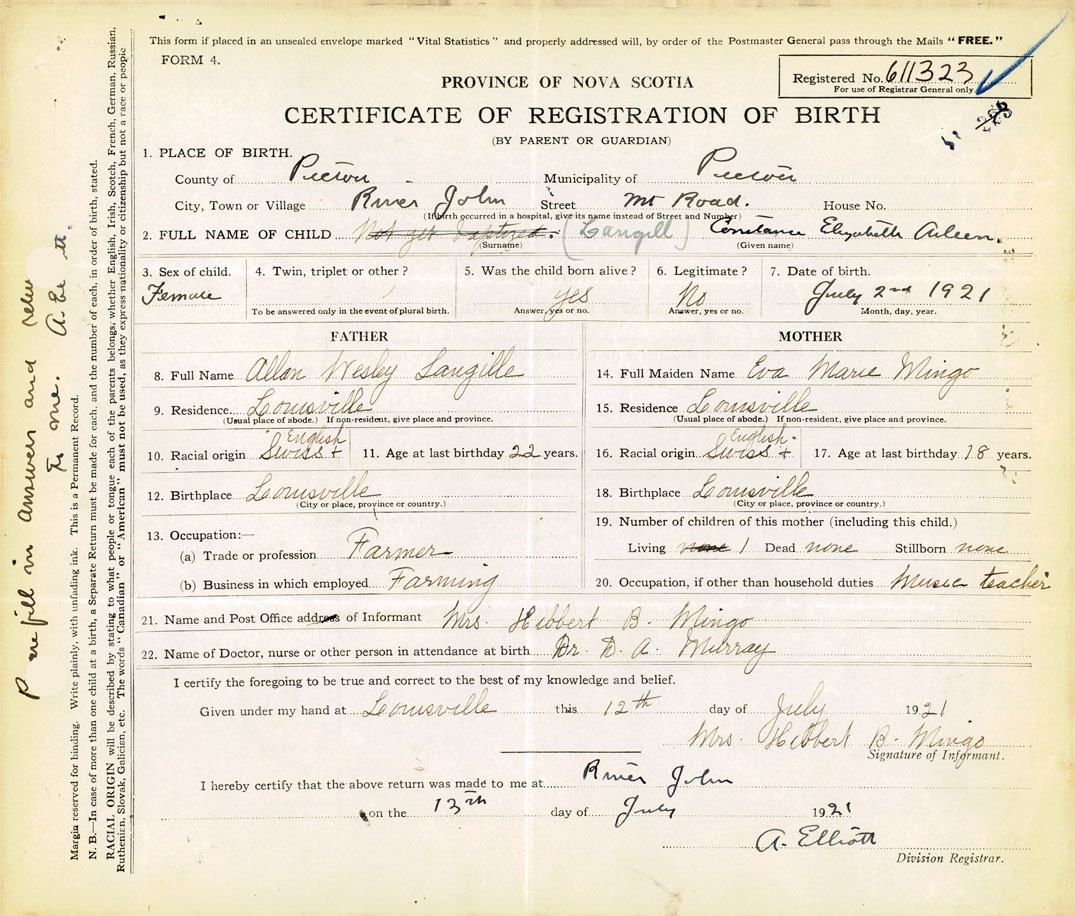 This form if placed in an unsealed envelope marked "Vital Statistics" and properly addressed will, by order of the Postmaster General pass through the Mails "FREE."
FORM 4.
Registered No. 611323
For use of Registrar General only
PROVINCE OF NOVA SCOTIA
CERTIFICATE OF REGISTRATION OF BIRTH
(BY PARENT OR GUARDIAN)
1. PLACE OF BIRTH.
County of Pictou Municipality of Pictou
City, Town or Village River John Street Mt Road. House No.
(If birth occurred in a hospital, give its name instead of Street and Number)
2. FULL NAME OF CHILD Not yet baptized. (Langill) Constance Elizabeth Aileen.
(Surname) (Given name)
3. Sex of child. 4. Twin, triplet or other? 5. Was the child born alive? 6. Legitimate? 7. Date of birth.
Female yes No July 2nd 1921
To be answered only in the event of plural birth. Answer, yes or no. Answer, yes or no. Month, day, year.
FATHER MOTHER
8. Full Name Allan Wesley Langille 14. Full Maiden Name Eva Marie Mingo
9. Residence Louisville 15. Residence Louisville
(Usual place of abode.) If non-resident, give place and province. (Usual place of abode.) If non-resident, give place and province.
English English.
10. Racial origin Swiss + 11. Age at last birthday 22 years. 16. Racial origin Swiss + 17. Age at last birthday 18 years.
12. Birthplace Louisville 18. Birthplace Louisville
(City or place, province or country.) (City or place, province or country.)
13. Occupation:— 19. Number of children of this mother (including this child.)
(a) Trade or profession Farmer Living none 1 Dead none Stillborn none
(b) Business in which employed Farming 20. Occupation, if other than household duties Music teacher
21. Name and Post Office address of Informant Mrs. Hibbert B. Mingo
22. Name of Doctor, nurse or other person in attendance at birth Dr. D. A. Murray
I certify the foregoing to be true and correct to the best of my knowledge and belief.
Given under my hand at Louisville this 12th day of July 1921
Mrs. Hibbert B. Mingo
Signature of Informant.
I hereby certify that the above return was made to me at River John
on the 13th day of July 1921
A. Elliott
Division Registrar.
Margin reserved for binding. Write plainly, with unfading ink. This is a Permanent Record.
N. B.—In case of more than one child at a birth, a Separate Return must be made for each, and the number of each, in order of birth, stated.
RACIAL ORIGIN will be described by stating to what people or tongue each of the parents belongs, whether English, Irish, Scotch, French, German, Russian,
Ruthenian, Slovak, Galician, etc. The words "Canadian" or "American" must not be used, as they express nationality or citizenship but not a race or people
fill in answers and
to me.